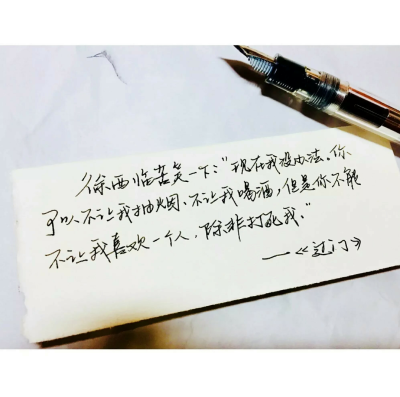 徐西临苦笑一下:“现在我没办法。你
可以不让我抽烟、不让我喝酒,但是你不能
不让我喜欢一个人,除非打死我。”
——《过门》